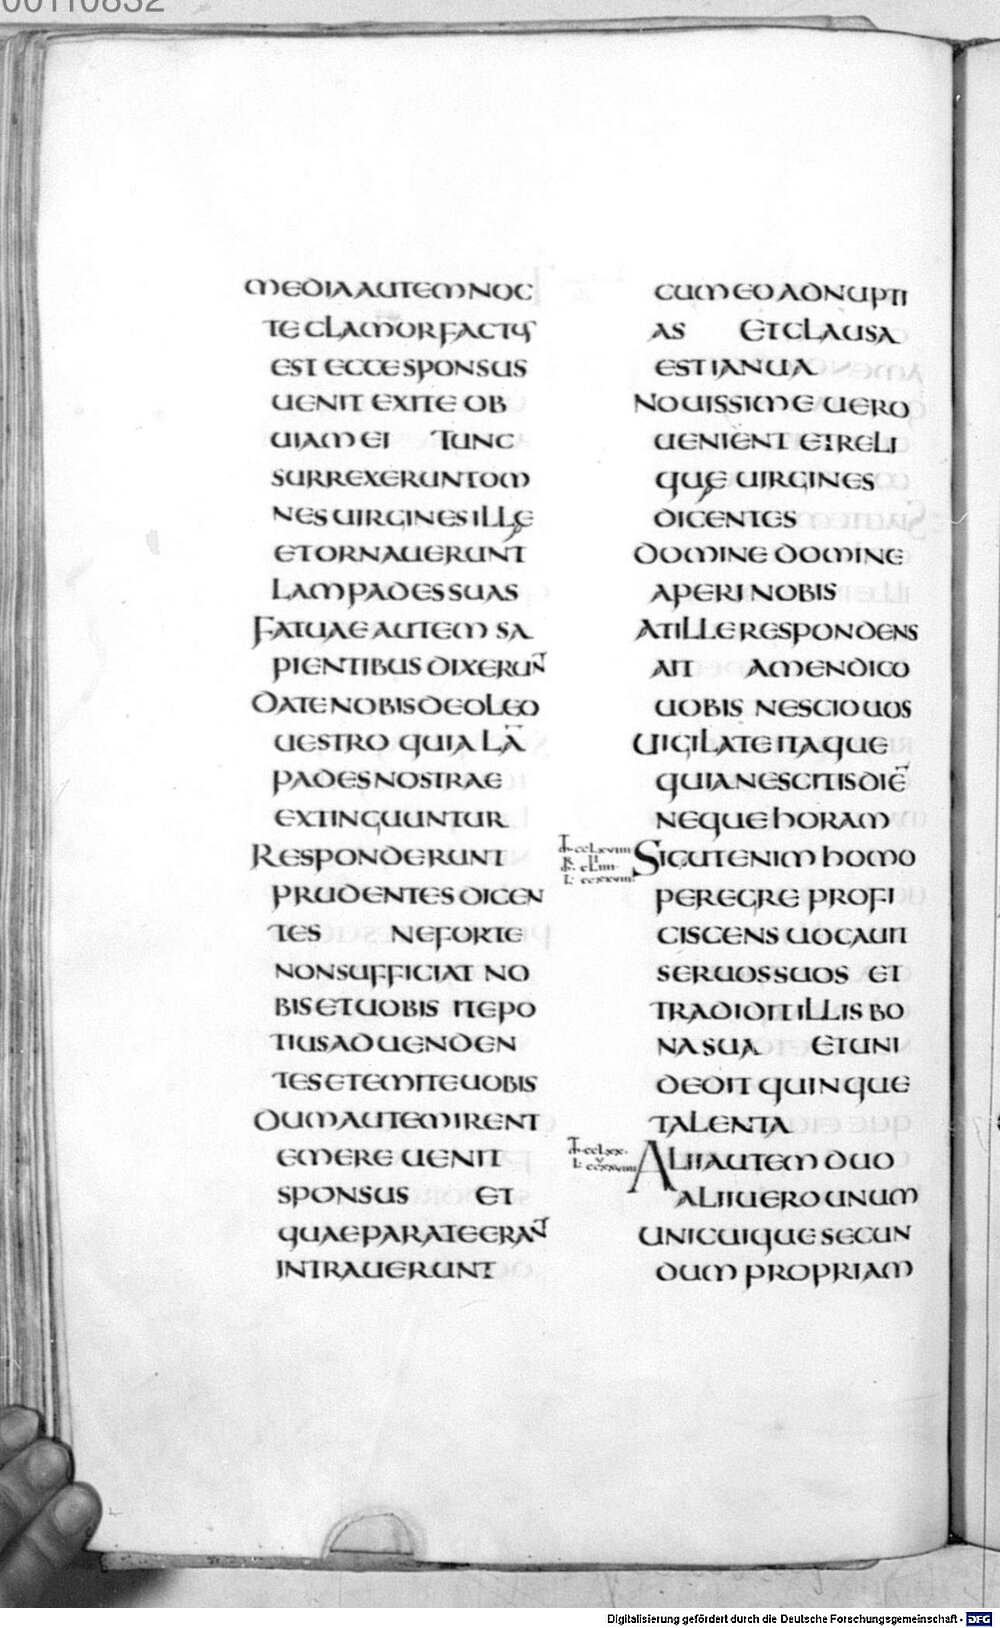 00110832
MEDIAAUTEMNOC
TE CLAMOR FACTUS
EST ECCE SPONSUS
UENIT EXITE OB
UIAM EI TUNC
SURREXERUNT OM
NES UIRGINES ILLĘ
ET ORNAUERUNT
LAMPADES SUAS
FATUAE AUTEM SA
PIENTIBUS DIXERUNT
DATE NOBIS DE OLEO
UESTRO QUIA LĀ
PADES NOSTRAE
EXTINGUUNTUR
RESPONDERUNT
PRUDENTES DICEN
TES NE FORTE
NON SUFFICIAT NO
BIS ET UOBIS ITE PO
TIUS AD UENDEN
TES ET EMITE UOBIS
DUM AUTEM IRENT
EMERE UENIT
SPONSUS ET
QUAE PARATE ERANT
INTRAUERUNT
CUM EO AD NUPTI
AS ET CLAUSA
EST IANUA
NOUISSIME UERO
UENIENT ET RELI
QUĘ UIRGINES
DICENTES
DOMINE DOMINE
APERI NOBIS
AT ILLE RESPONDENS
AIT AMEN DICO
UOBIS NESCIO UOS
UIGILATE ITAQUE
QUIA NESCITIS DIĒ
NEQUE HORAM
SICUT ENIM HOMO
PEREGRE PROFI
CISCENS UOCAUIT
SERUOS SUOS ET
TRADIDIT ILLIS BO
NA SUA ET UNI
DEDIT QUINQUE
TALENTA
ALII AUTEM DUO
ALII UERO UNUM
UNICUIQUE SECUN
DUM PROPRIAM
Digitalisierung gefördert durch die Deutsche Forschungsgemeinschaft - DFG